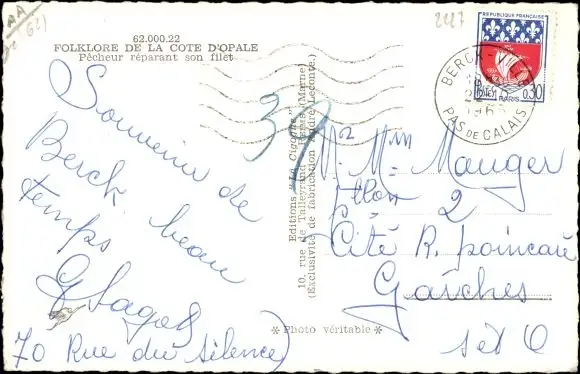 AA
2227
62.000.22
FOLKLORE DE LA COTE D'OPALE
Pêcheur réparant son filet
Souvenir de
Berck beau
temps
70 Rue du silence)
37
Editions "La Cigogne"
10, rue de Talleyrand - Reims (Marne)
(Exclusivité de fabrication André Leconte.)
* Photo véritable *
REPUBLIQUE FRANÇAISE
POSTES
PARIS
0,30
BERCK-VILLE
PAS DE CALAIS
Mr Mme Mauger
2
Cité R. poincaré
Garches
S et O